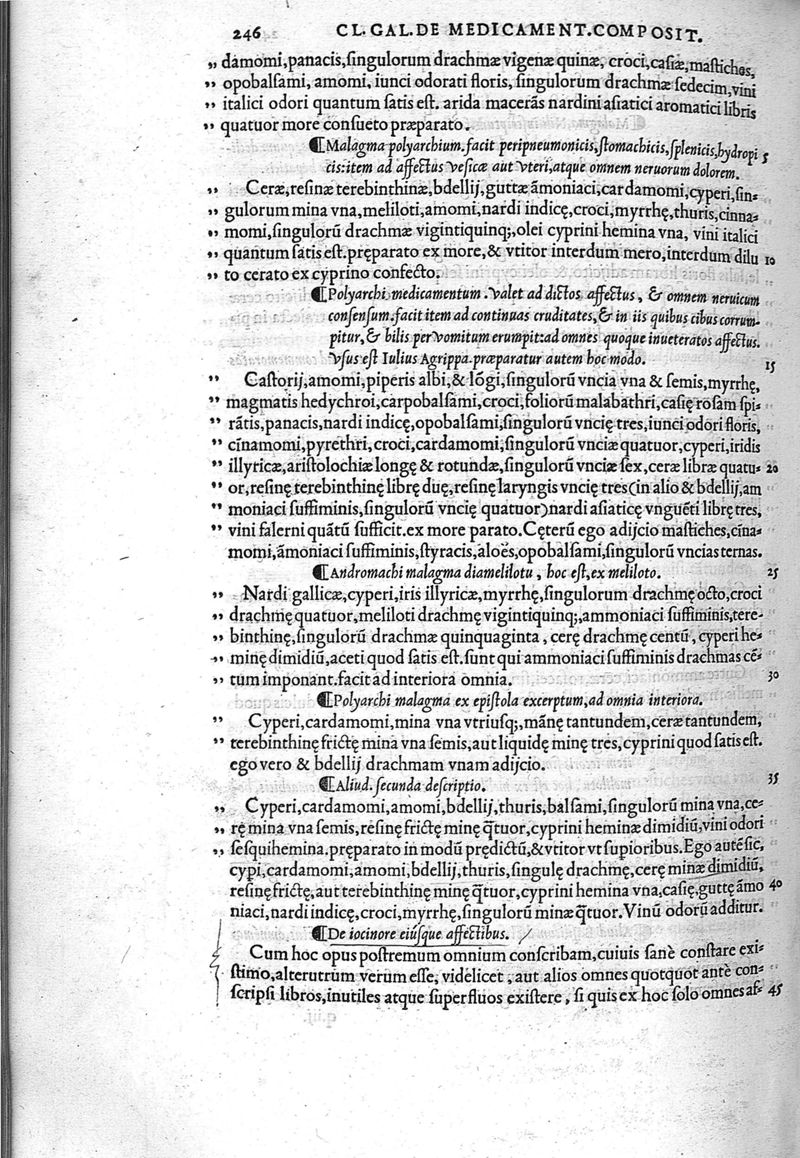 246 CL. GAL. DE MEDICAMENT. COMPOSIT.
„ damomi, panacis, ſingulorum drachmæ vigenæ quinæ, croci, caſiæ, maſtiches,
„ opobalſami, amomi, iunci odorati floris, ſingulorum drachmæ ſedecim, vini
„ italici odori quantum ſatis eſt. arida macerãs nardini aſiatici aromatici libris
„ quatuor more conſueto præparato.
¶Malagma polyarchium. facit peripneumonicis, ſtomachicis, ſplenicis, hydropi 5
cis: item ad affectus veſicæ aut vteri, atque omnem neruorum dolorem.
„ Ceræ, reſinæ terebinthinæ, bdellij, guttæ ãmoniaci, cardamomi, cyperi, ſin-
„ gulorum mina vna, meliloti, amomi, nardi indicę, croci, myrrhę, thuris, cinna-
„ momi, ſingulorũ drachmæ vigintiquinq;, olei cyprini hemina vna, vini italici
„ quantum ſatis eſt. pręparato ex more, & vtitor interdum mero, interdum dilu 10
„ to cerato ex cyprino confecto.
¶Polyarchi medicamentum. Valet ad dictos affectus, & omnem neruicum
conſenſum. facit item ad continuas cruditates, & in iis quibus cibus corrum-
pitur, & bilis per vomitum erumpit: ad omnes quoque inueteratos affectus.
Vſus eſt Iulius Agrippa. præparatur autem hoc modo. 15
„ Caſtorij, amomi, piperis albi, & lõgi, ſingulorũ vncia vna & ſemis, myrrhę,
„ magmatis hedychroi, carpobalſami, croci, foliorũ malabathri, caſię roſam ſpi-
„ rãtis, panacis, nardi indicę, opobalſami, ſingulorũ vncię tres, iunci odori floris,
„ cĩnamomi, pyrethri, croci, cardamomi, ſingulorũ vnciæ quatuor, cyperi, iridis
„ illyricæ, ariſtolochiæ longę & rotundæ, ſingulorũ vnciæ ſex, ceræ libræ quatu- 20
„ or, reſinę terebinthinę librę duę, reſinę laryngis vncię tres (in alio & bdellij, am
„ moniaci ſuffiminis, ſingulorũ vncię quatuor) nardi aſiaticę vnguẽti librę tres,
„ vini falerni quãtũ ſufficit. ex more parato. Cęterũ ego adijcio maſtiches, cĩna-
momi, ãmoniaci ſuffiminis, ſtyracis, aloës, opobalſami, ſingulorũ vncias ternas.
¶Andromachi malagma diamelilotu, hoc eſt, ex meliloto. 25
„ Nardi gallicæ, cyperi, iris illyricæ, myrrhę, ſingulorum drachmę octo, croci
„ drachmę quatuor, meliloti drachmę vigintiquinq;, ammoniaci ſuffiminis, tere-
„ binthinę, ſingulorũ drachmæ quinquaginta, cerę drachmę centũ, cyperi he-
„ minę dimidiũ, aceti quod ſatis eſt. ſunt qui ammoniaci ſuffiminis drachmas cẽ-
„ tum imponant. facit ad interiora omnia. 30
¶Polyarchi malagma ex epiſtola excerptum, ad omnia interiora.
„ Cyperi, cardamomi, mina vna vtriuſq;, mãnę tantundem, ceræ tantundem,
„ terebinthinę frictę mina vna ſemis, aut liquidę minę tres, cyprini quod ſatis eſt.
ego vero & bdellij drachmam vnam adijcio.
¶Aliud. ſecunda deſcriptio. 35
„ Cyperi, cardamomi, amomi, bdellij, thuris, balſami, ſingulorũ mina vna, ce-
„ rę mina vna ſemis, reſinę frictę minę q̃tuor, cyprini heminæ dimidiũ, vini odori
„ ſeſquihemina. pręparato in modũ prędictũ, & vtitor vt ſupioribus. Ego autẽ ſic,
cypi, cardamomi, amomi, bdellij, thuris, ſingulę drachmę, cerę minæ dimidiũ,
reſinę frictę, aut terebinthinę minę q̃tuor, cyprini hemina vna, caſię, guttę ãmo 40
niaci, nardi indicę, croci, myrrhę, ſingulorũ minæ q̃tuor. Vinũ odorũ additur.
¶De iocinore eiúſque affectibus.
Cum hoc opus poſtremum omnium conſcribam, cuiuis ſanè conſtare exi-
ſtimo, alterutrum verum eſſe, videlicet, aut alios omnes quotquot antè con-
ſcripſi libros, inutiles atque ſuperfluos exiſtere, ſi quis ex hoc ſolo omnes aſ- 45